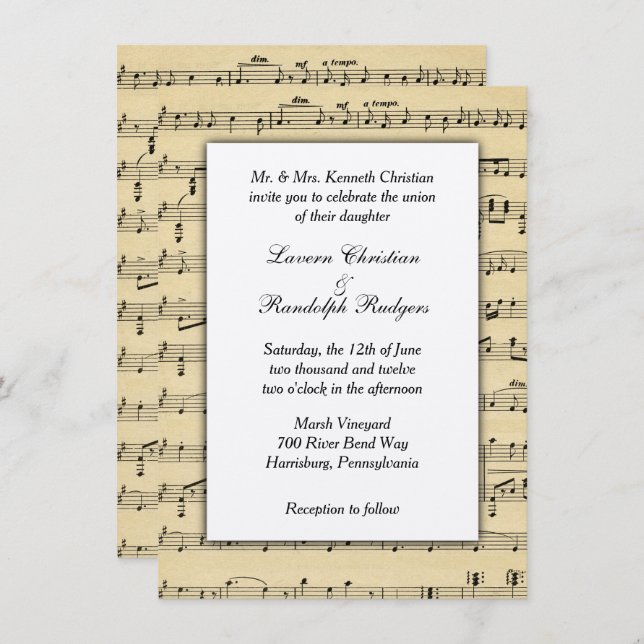 dim. mf a tempo.
dim. mf a tempo.
Mr. & Mrs. Kenneth Christian
invite you to celebrate the union
of their daughter
Lavern Christian
&
Randolph Rudgers
Saturday, the 12th of June
two thousand and twelve
two o'clock in the afternoon
dim.
Marsh Vineyard
700 River Bend Way
Harrisburg, Pennsylvania
Reception to follow